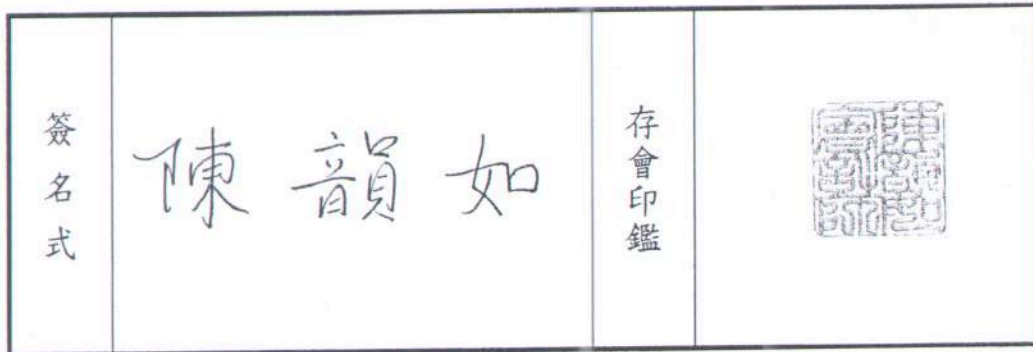 簽名式
陳韻如
存會印鑑